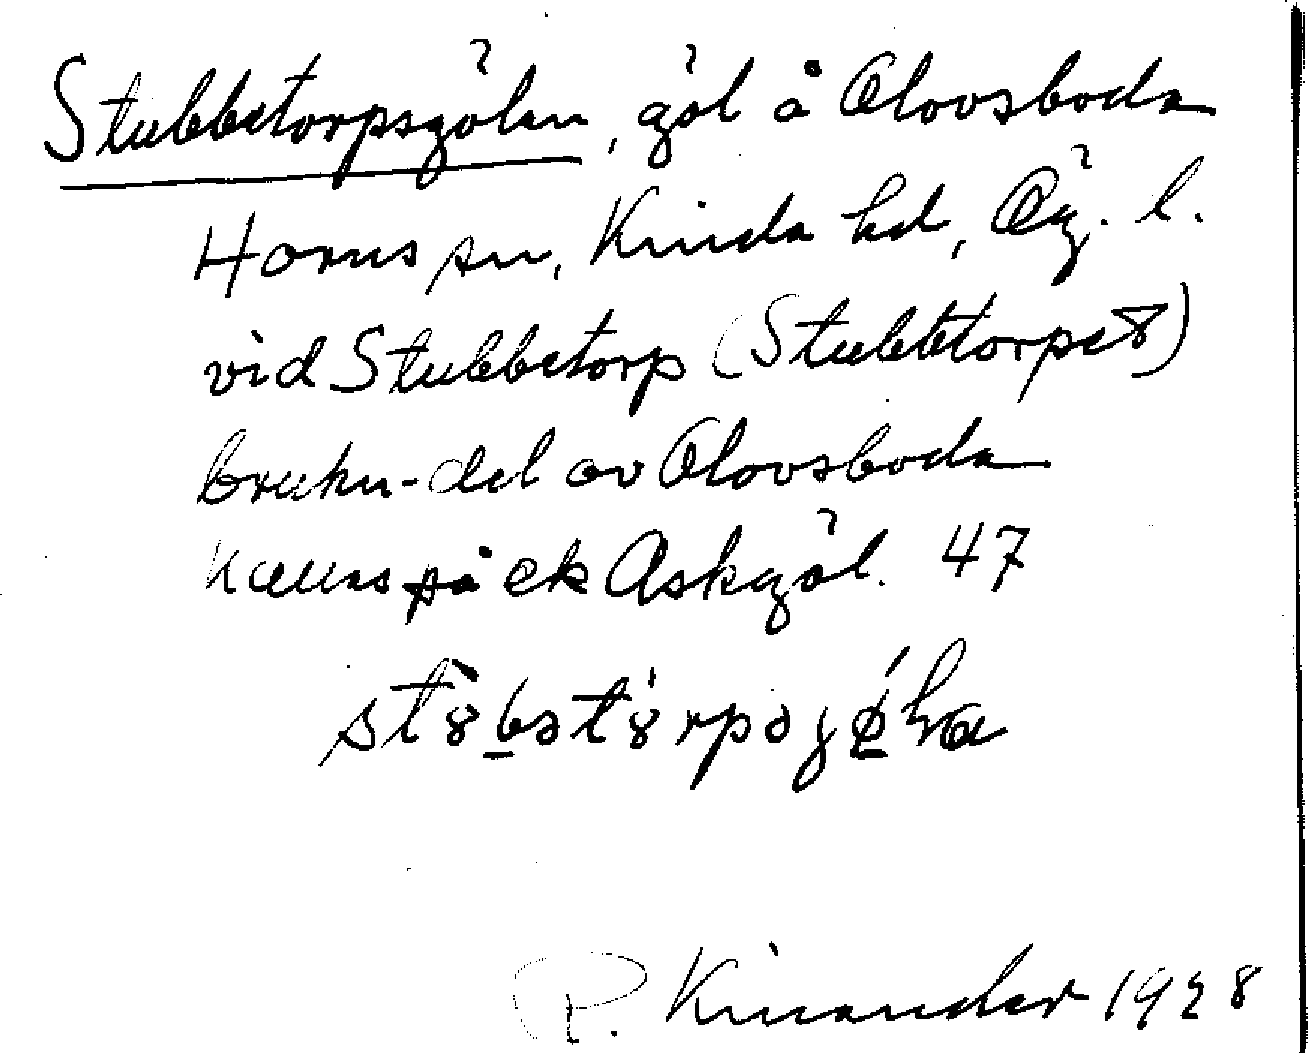 Stubbetorpsgölen, göl å Olovsboda
Horns sn, Kinda hd, Ög. l.
vid Stubbetorp (Stubbetorpet)
brukn-del av Olovsboda
Kallas på ek Askgöl. 47
P. Kinander 1928